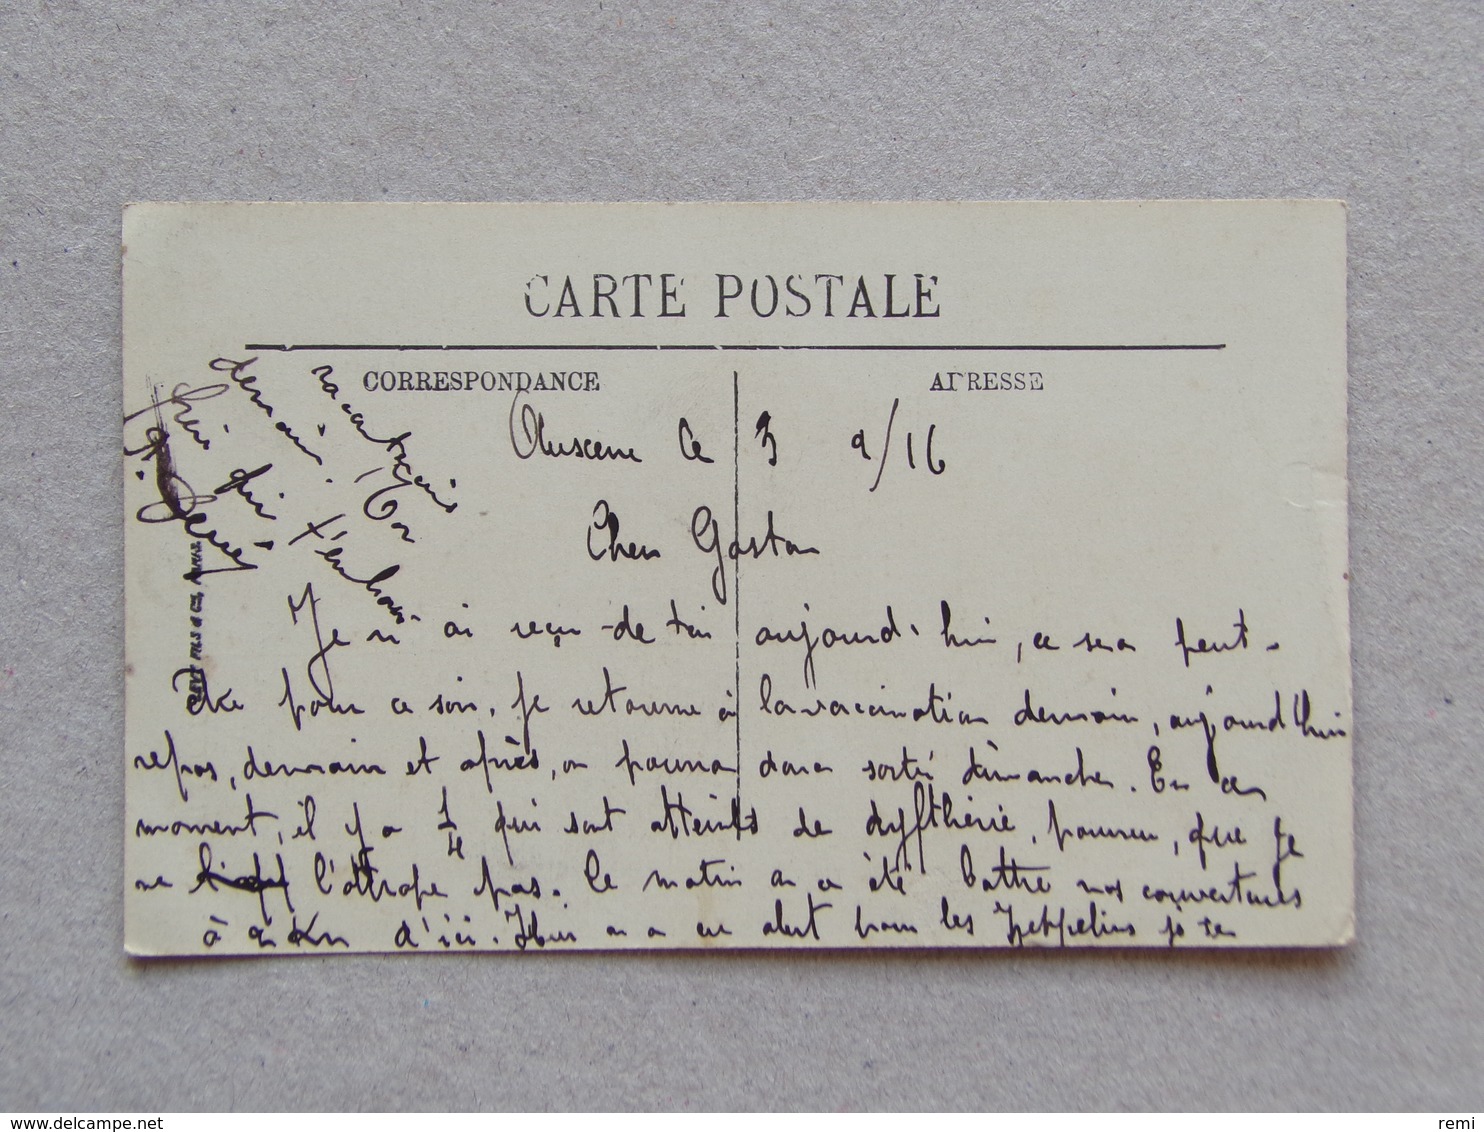 CARTE POSTALE
CORRESPONDANCE
ADRESSE
le 3 9/16
Cher Gaston
Je n'ai reçu de toi aujourd'hui, ce sera peut-
être pour ce soir, je retourne à la vaccination demain, aujourd'hui
repos, demain et après, on pourra donc sortir dimanche. En ce
moment, il y a 1/4 qui sont atteints de dyftherie, pourvu, que je
ne l'attrape pas. Ce matin on a été battre nos couvertures
à Km d'ici. Hier on a eu alert pour les Zeppelins je te
racontrais
demain. Ton
frère qui t'embras.
delcampe.net
remi